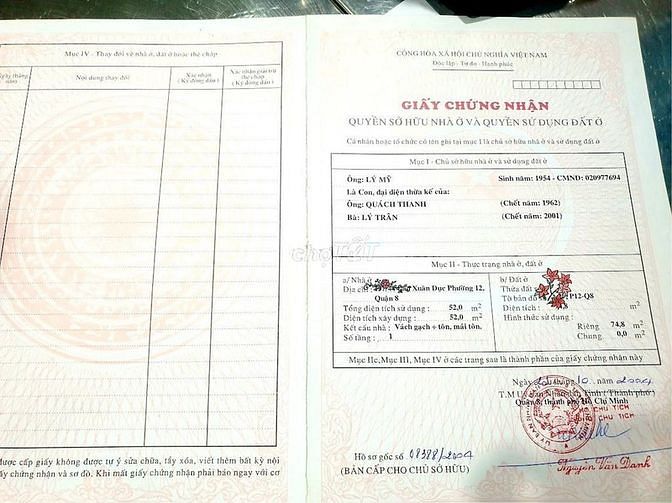 Mục IV - Thay đổi về nhà ở, đất ở hoặc thế chấp
Ngày tháng năm
Nội dung thay đổi
Xác nhận
(Ký đóng dấu)
Xác nhận giải trừ thế chấp
(Ký đóng dấu)
được cấp giấy không được tự ý sửa chữa, tẩy xóa, viết thêm bất kỳ nội
ấy chứng nhận và sơ đồ. Khi mất giấy chứng nhận phải báo ngay với cơ
CỘNG HÒA XÃ HỘI CHỦ NGHĨA VIỆT NAM
Độc lập - Tự do - Hạnh phúc
GIẤY CHỨNG NHẬN
QUYỀN SỞ HỮU NHÀ Ở VÀ QUYỀN SỬ DỤNG ĐẤT Ở
Cá nhân hoặc tổ chức có tên ghi tại mục I là chủ sở hữu nhà ở và sử dụng đất ở
Mục I - Chủ sở hữu nhà ở và sử dụng đất ở
Ông: LÝ MỸ Sinh năm: 1954 - CMND: 020977694
Là Con, đại diện thừa kế của:
Ông: QUÁCH THANH (Chết năm: 1962)
Bà: LÝ TRÂN (Chết năm: 2001)
chợTỐT
Mục II - Thực trạng nhà ở, đất ở
a/ Nhà ở
Địa chỉ Xuân Dục Phường 12,
Quận 8
Tổng diện tích sử dụng : 52,0 m2
Diện tích xây dựng : 52,0 m2
Kết cấu nhà : Vách gạch + tôn, mái tôn.
Số tầng : 1
b/ Đất ở
Thửa đất
Tờ bản đồ P12-Q8
Diện tích : m2
Hình thức sử dụng :
Riêng : 74,8 m2
Chung : 0,0 m2
Mục IIc, Mục III, Mục IV ở các trang sau là thành phần của giấy chứng nhận này
Ngày tháng 10 năm 2004
T.M Ủy Ban Nhân Dân Tỉnh (Thành phố)
Quận 8, thành phố Hồ Chí Minh
CHỦ TỊCH
CHỦ TỊCH
Hồ sơ gốc số 08388/2004
(BẢN CẤP CHO CHỦ SỞ HỮU)
Nguyễn Văn Danh